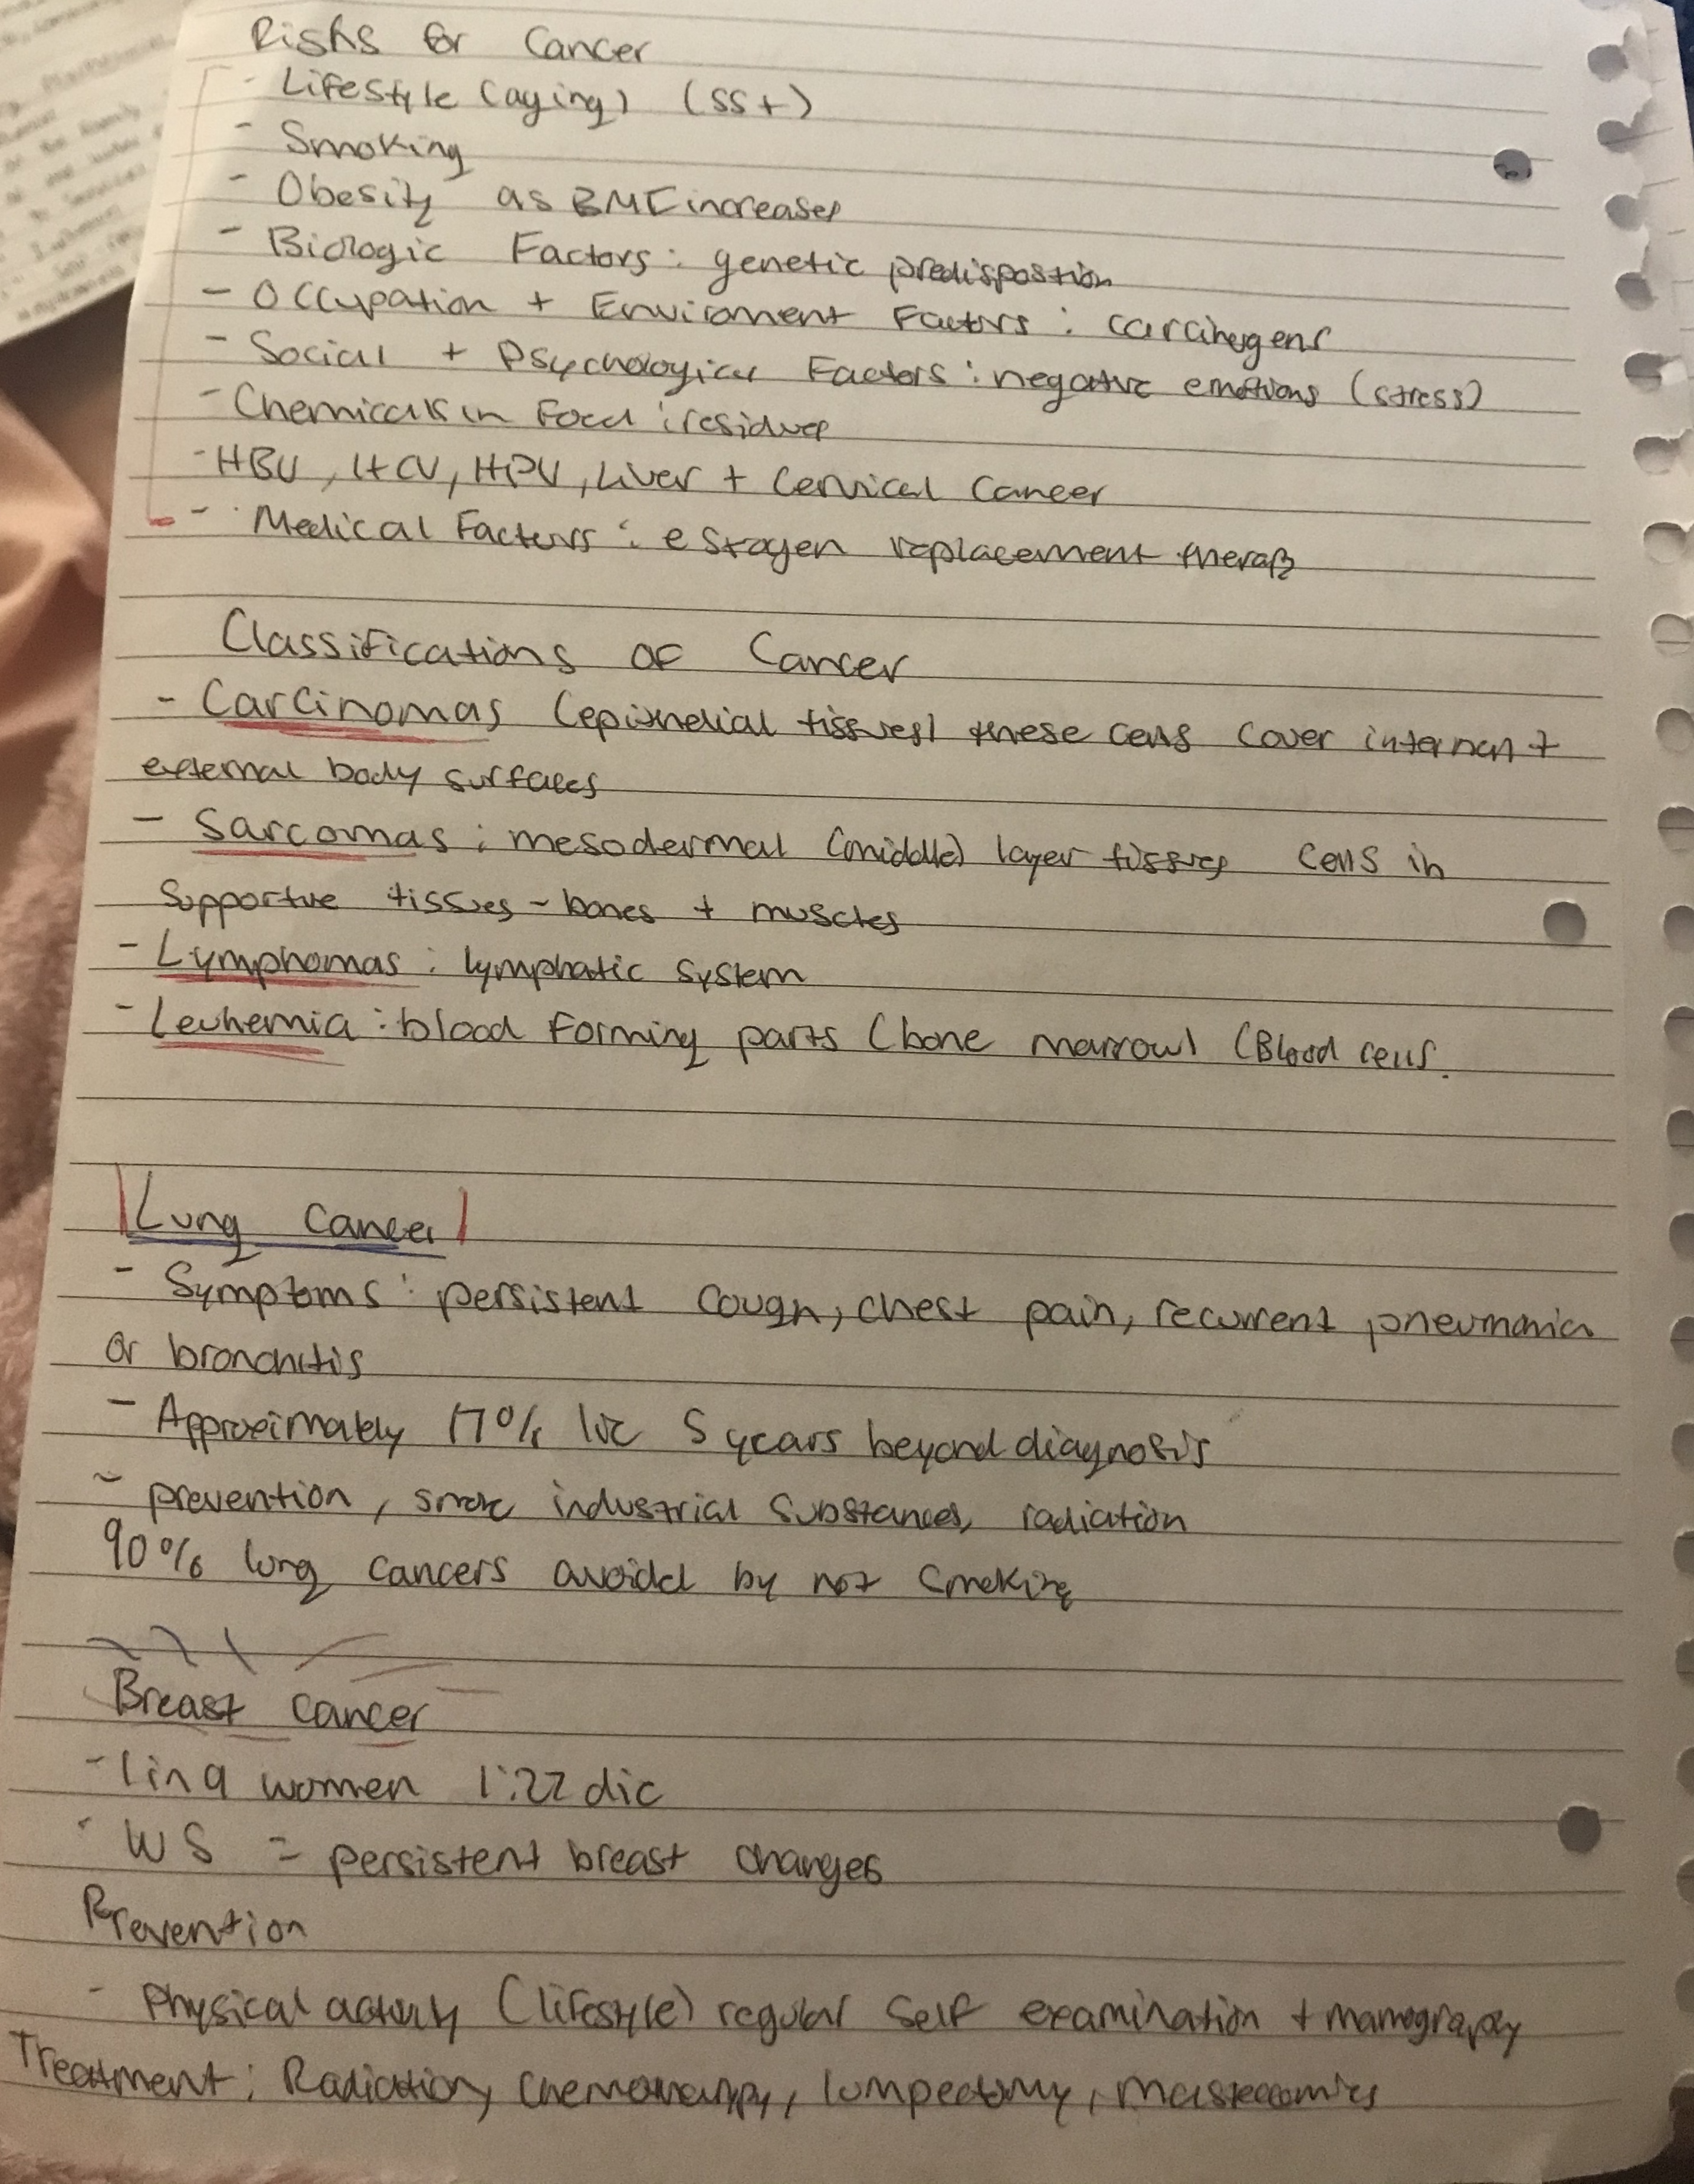 Risks for Cancer
- Lifestyle (aging) (SS+)
- Smoking
- Obesity as BMI increases
- Biologic Factors: genetic predispostion
- Occupation + Enviroment Factors: carcinogens
- Social + Psychological Factors: negative emotions (stress)
- Chemicals in Food: residues
- HBV, HCV, HPV, Liver + Cervical Cancer
- Medical Factors: estrogen replacement therapy
Classifications of Cancer
- Carcinomas (epithelial tissues) these cells cover internal +
external body surfaces
- Sarcomas: mesodermal (middle) layer tissues cells in
supportive tissues - bones + muscles
- Lymphomas: lymphatic system
- Leukemia: blood forming parts (bone marrow) (Blood cells.
Lung Cancer
- Symptoms: persistent cough, chest pain, recurrent pneumonia
or bronchitis
- Approximately 17% live 5 years beyond diagnosis
- prevention, smoke industrial substances, radiation
90% lung cancers avoided by not smoking
Breast cancer
- 1 in 9 women 1:22 die
- WS = persistent breast changes
Prevention
- Physical activity (lifestyle) regular self examination + mamography
Treatment: Radiation, Chemotherapy, lumpectomy, mastectomies